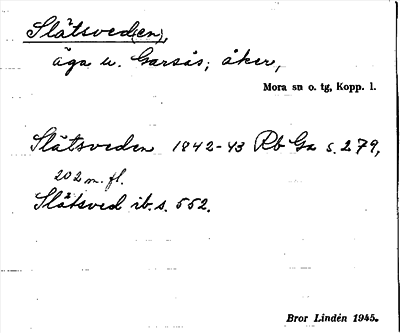 Slåtsved(en),
äga u. Garsås; åker,
Mora sn o. tg, Kopp. l.
Slåtsveden 1842-43 Rb Ga s. 279,
202 m. fl.
Slåtsved ib. s. 552.
Bror Lindén 1945.